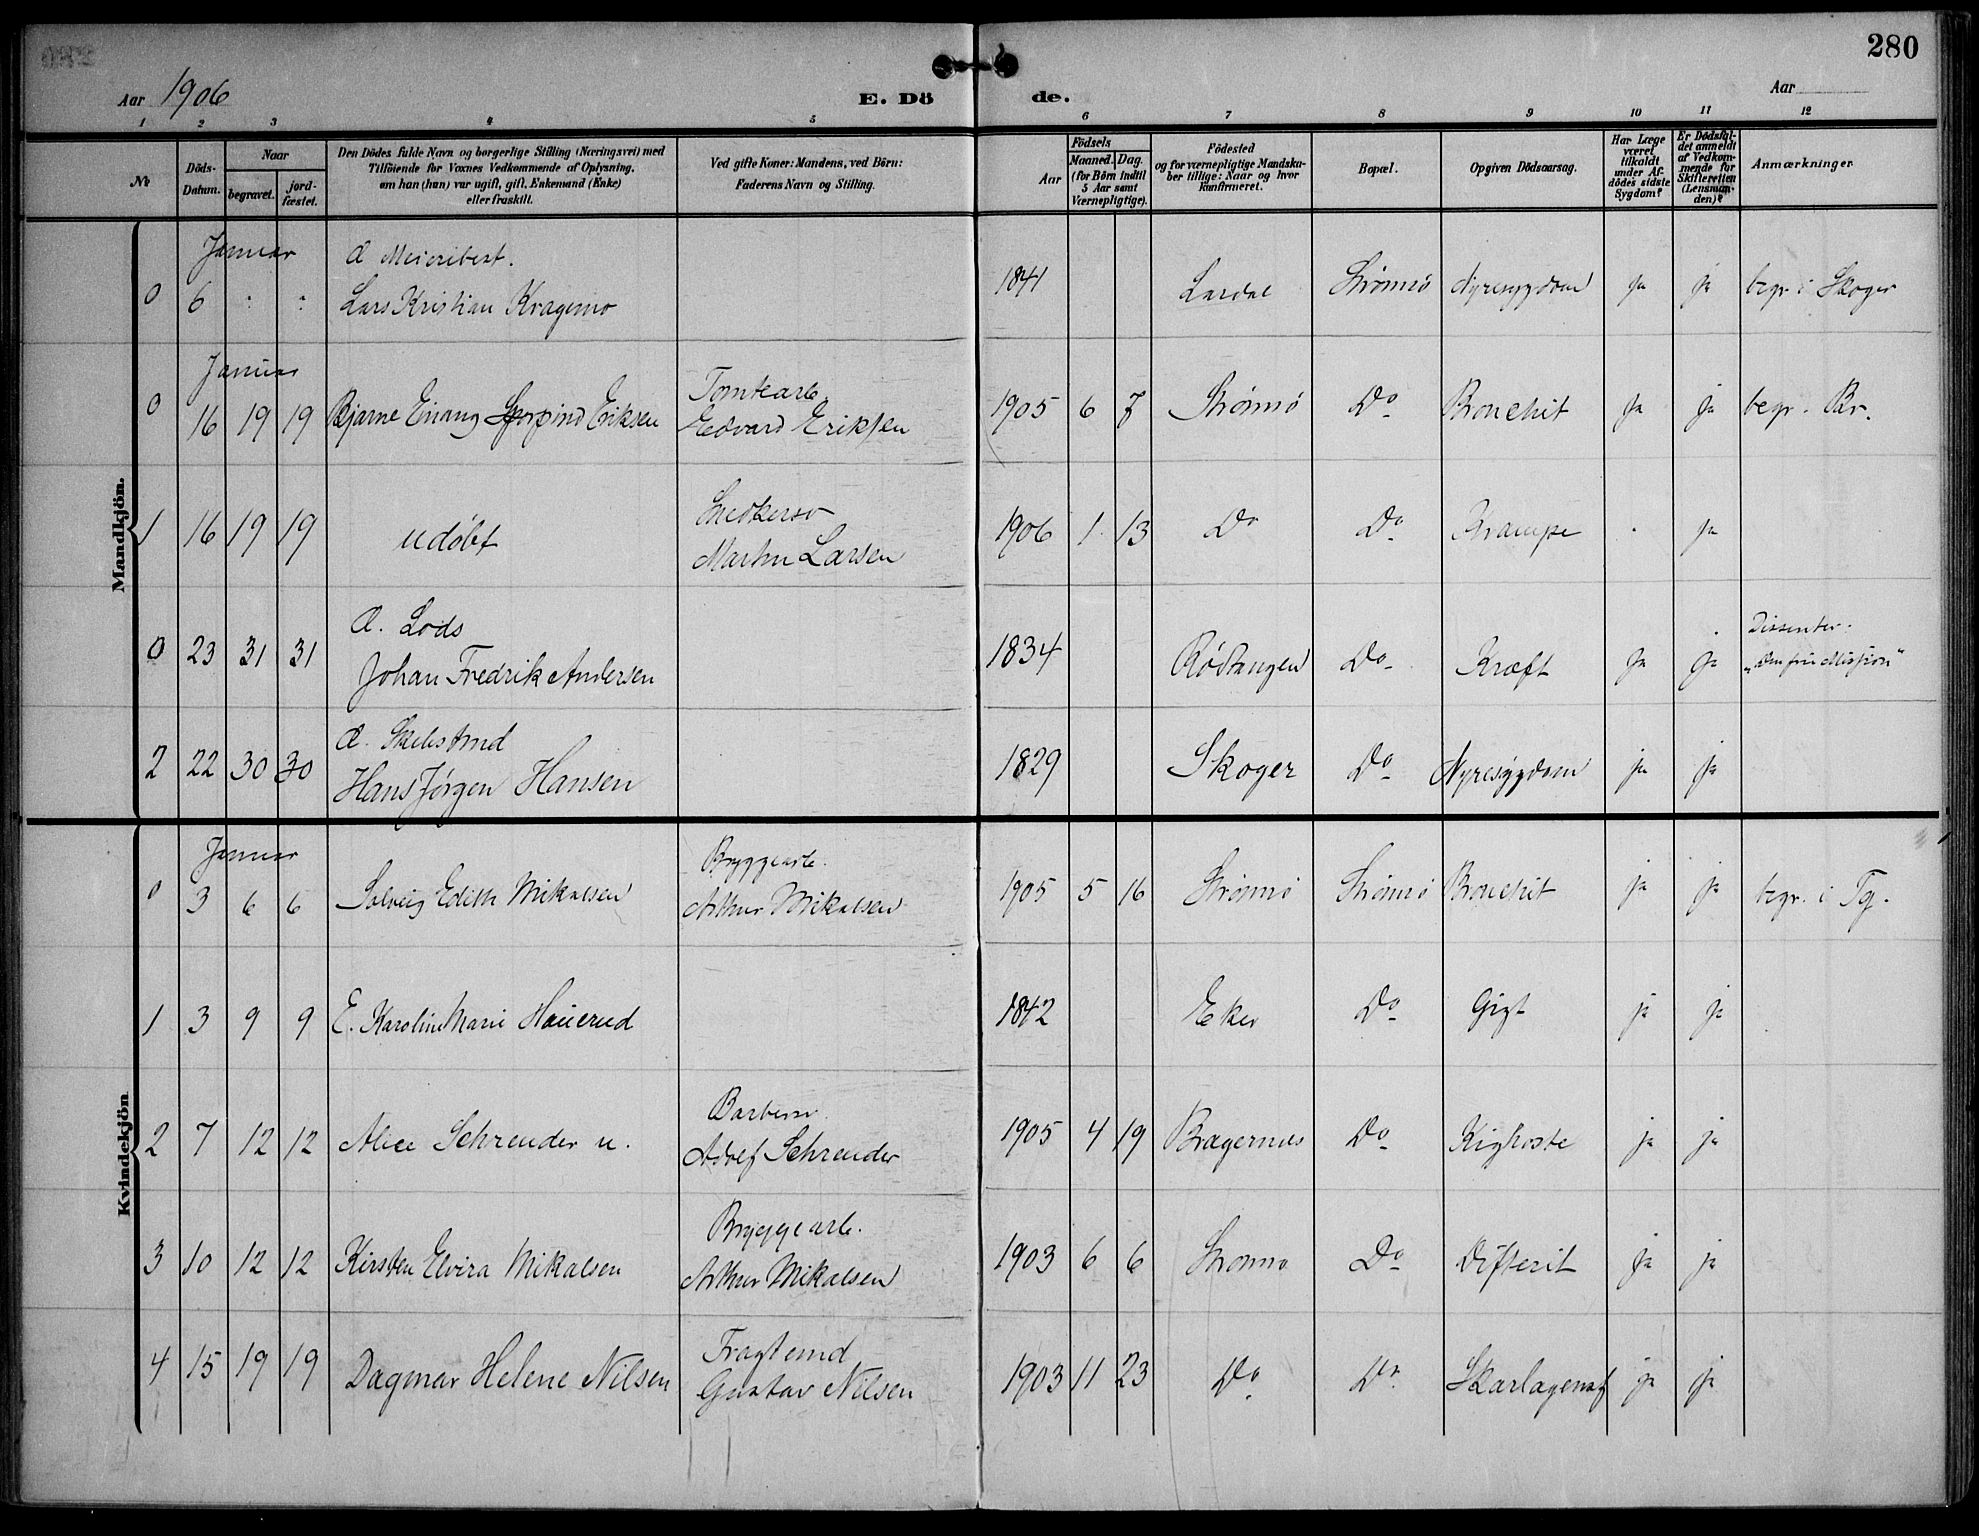 280
Aar 1906
E. Dö de.
Aar
1 2 3 4 5 6 7 8 9 10 11 12
No
Döds-Datum.
Naar
begravet.
jord-fæstet.
Den Dödes fulde Navn og borgerlige Stilling (Næringsvei) med
Tilföiende for Voxnes Vedkommende af Oplysning,
om han (hun) var ugift, gift, Enkemand (Enke)
eller fraskilt.
Ved gifte Koner: Mandens, ved Börn:
Faderens Navn og Stilling.
Födsels
Aar
Maaned. Dag.
(for Börn indtil
5 Aar samt
Værnepligtige).
Födested
og for værnepligtige Mandska-
ber tillige: Naar og hvor
Konfirmeret.
Bopæl.
Opgiven Dödsaarsag.
Har Læge
været
tilkaldt
under Af-
dödes sidste
Sygdom?
Er Dödsfal-
det anmeldt
af Vedkom-
mende for
Skifteretten
(Lensman-
den)?
Anmærkninger
Mandkjön.
Januar
Æ Meieribest.
0 6 " " Lars Kristian Kragemo 1841 Lardal Strømsø Nyresygdom ja ja begr i Skoger
Januar
Tomtearb.
0 16 19 19 Bjarne Einang Eriksen Edvard Eriksen 1905 6 7 Strømsø Do Bronchit ja ja begr. Br.
Snedkersv
1 16 19 19 udøbt Martin Larsen 1906 1 13 Do Do Krampe " ja
Æ. Lods
Dissenter.
0 23 31 31 Johan Fredrik Andersen 1834 Rødtangen Do Kræft ja ja "Den frie Mission"
Æ. Skibstmd
2 22 30 30 Hans Jørgen Hansen 1829 Skoger Do Nyresygdom ja ja
Kvindekjön
Januar
Bryggearb.
0 3 6 6 Solveig Edith Mikalsen Arthur Mikalsen 1905 5 16 Strømsø Strømsø Bronchit ja ja begr. i Tg.
1 3 9 9 E. Karoline Marie Hauerud 1842 Eker Do Gigt ja ja
Barbersv.
2 7 12 12 Alice Schreuder u. Adolf Schreuder 1905 4 19 Bragernes Do Kighoste ja ja
Bryggearb.
3 10 12 12 Kirsten Elvira Mikalsen Arthur Mikalsen 1903 6 6 Strømsø Do Difterit ja ja
Fragtemd
4 15 19 19 Dagmar Helene Nilsen Gustav Nilsen 1903 11 23 Do Do Skarlagensf ja ja